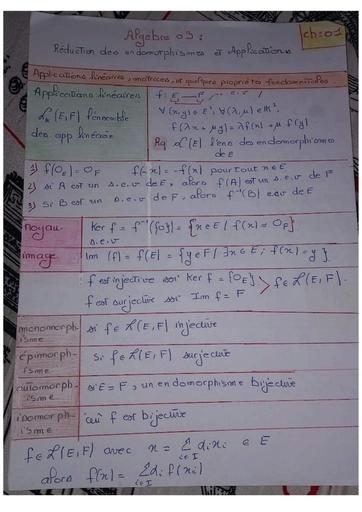 Algèbre 03 :
ch: 01
Réduction des endomorphismes et Applications
Applications linéaires, matrices, et quelques propriétés fondamentales.
Applications linéaires
L_k(E,F) l'ensemble
des app linéaire
f: E → F
∀(x,y)∈E², ∀(λ,μ)∈K².
f(λx + μy) = λf(x) + μ f(y)
Rq L(E) l'ens des endomorphismes
de E
1) f(0_E) = 0_F f(-x) = -f(x) pour tout x∈E
2) si A est un s.e.v de E, alors f(A) est un s.e.v de F
3) Si B est un s.e.v de F, alors f⁻¹(B) s.e.v de E
noyau
Ker f = f⁻¹({0}) = {x∈E / f(x) = 0_F}
s.e.v
image
Im(f) = f(E) = {y∈F / ∃x∈E ; f(x) = y}
f est injective ssi Ker f = {0_E}
f est surjective ssi Im f = F
f∈L(E,F).
monomorph-
isme
si f∈L(E,F) injective
épimorph-
isme
Si f∈L(E,F) surjective
automorph-
isme
si E = F, un endomorphisme bijective
isomorph-
isme
f est bijective
f∈L(E,F) avec x = Σ_{i∈I} αᵢxᵢ ∈ E
alors f(x) = Σ_{i∈I} αᵢ f(xᵢ)